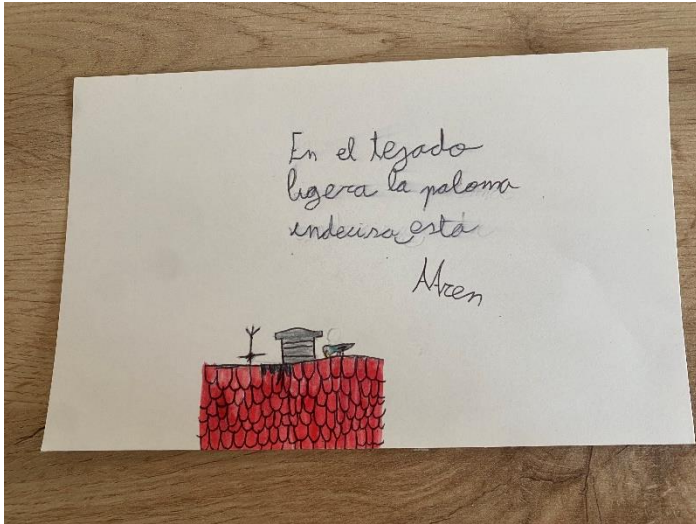 En el tejado
ligera la paloma
indecisa está